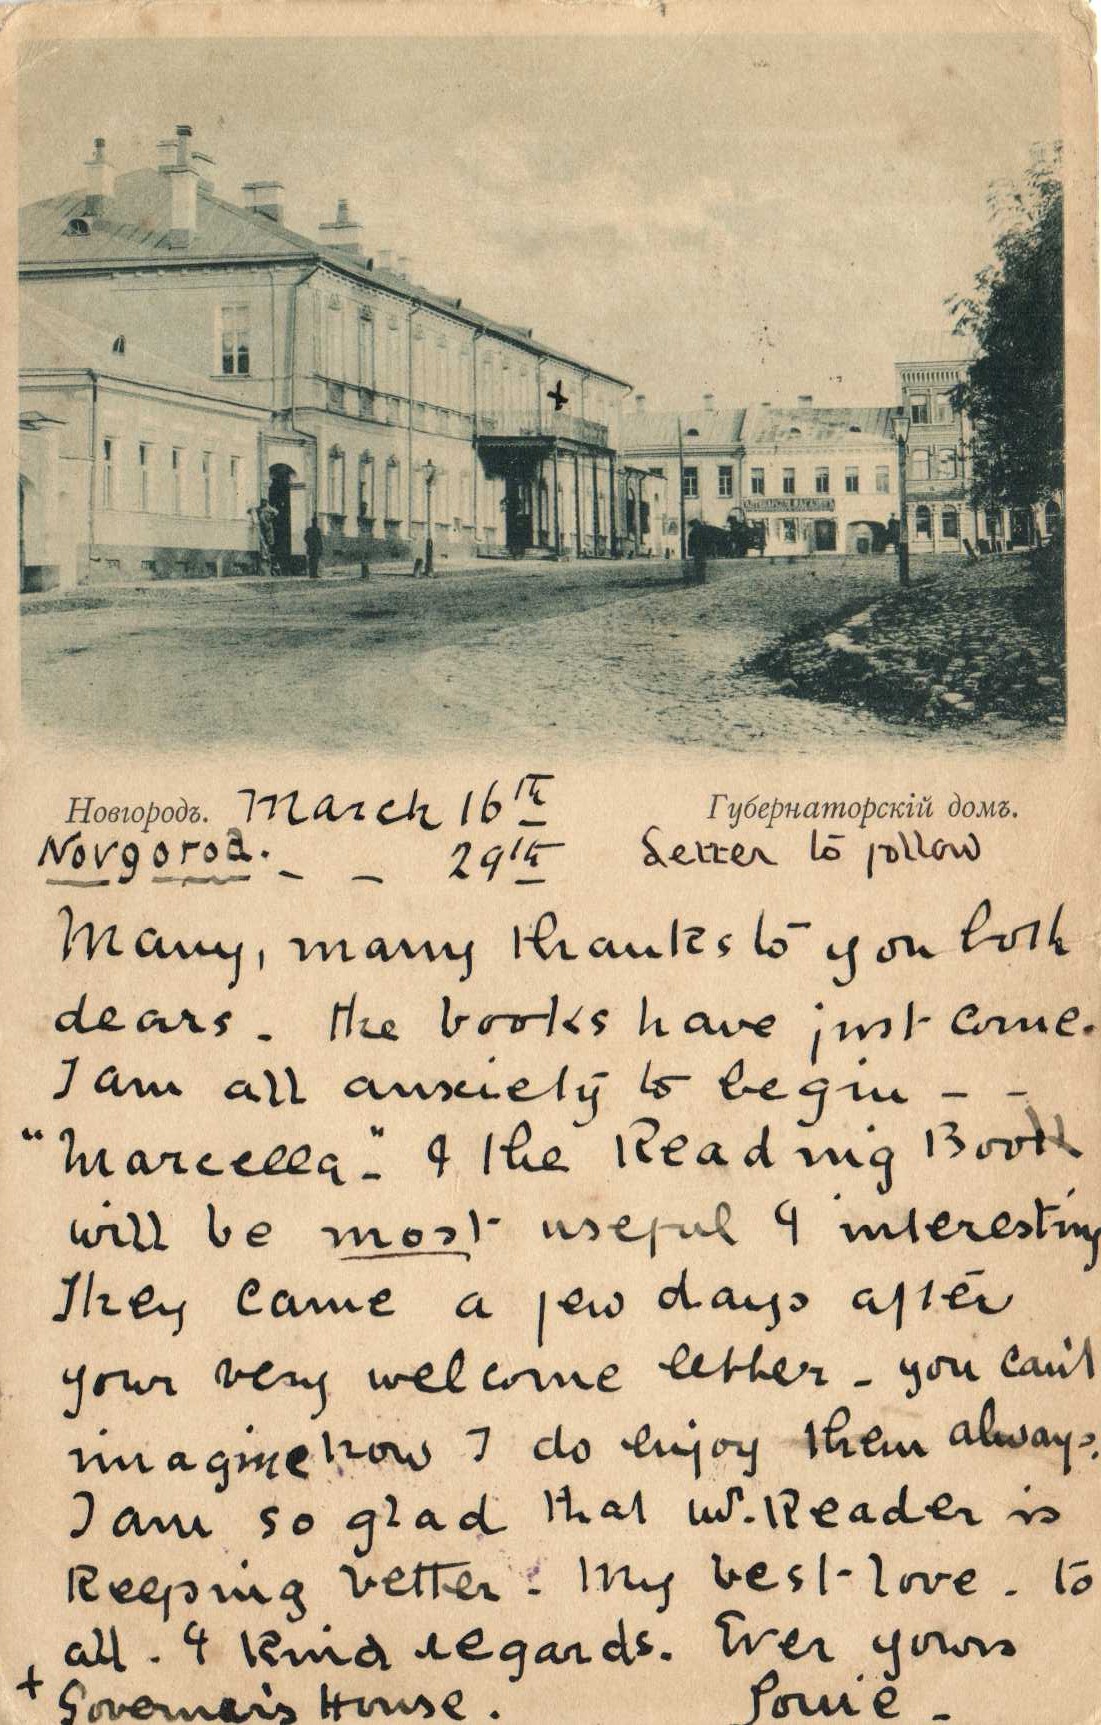 Новгородъ. March 16th Губернаторскій домъ.
Novgorod. - - 29th Letter to follow
Many, many thanks to you both
dears - the books have just come.
I am all anxiety to begin - -
"Marcella" - & the Reading Book
will be most useful & interesting
They came a few days after
your very welcome letter - you can't
imagine how I do enjoy them always.
I am so glad that Mr. Reader is
Keeping better - My best love - to
all. & kind regards. Ever yours
+ Governor's House. Louie -